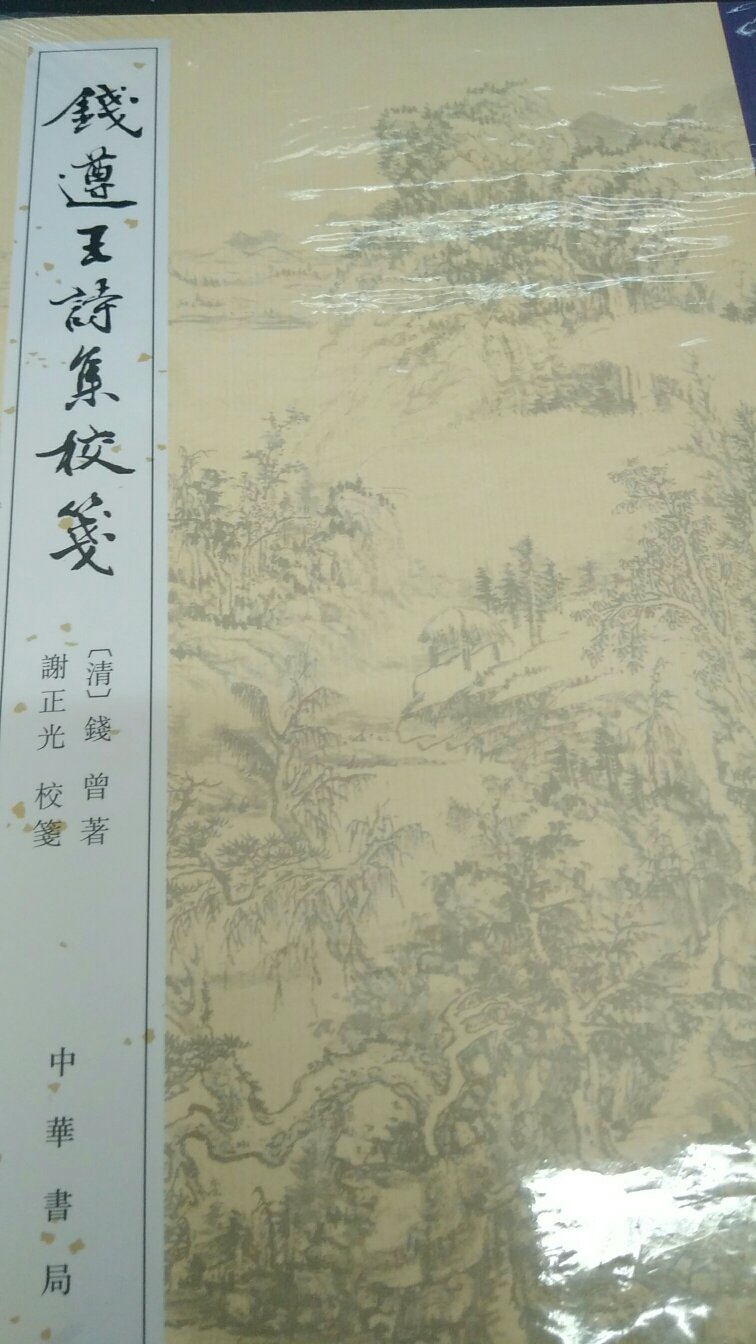 錢遵王詩集校箋
〔清〕錢曾著
謝正光 校箋
中華書局